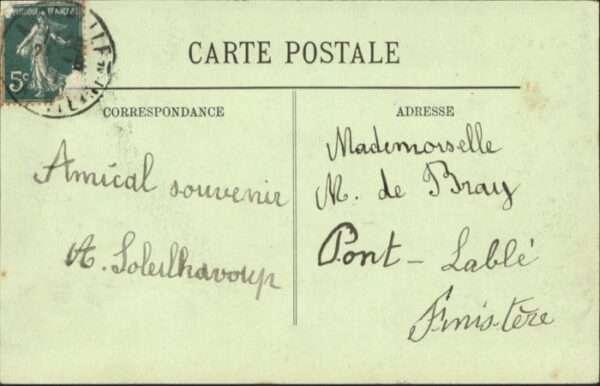 5c
CARTE POSTALE
CORRESPONDANCE
Amical souvenir
A. Soleilhavoup
ADRESSE
Mademoiselle
M. de Bray
Pont-Lablé
Finistère